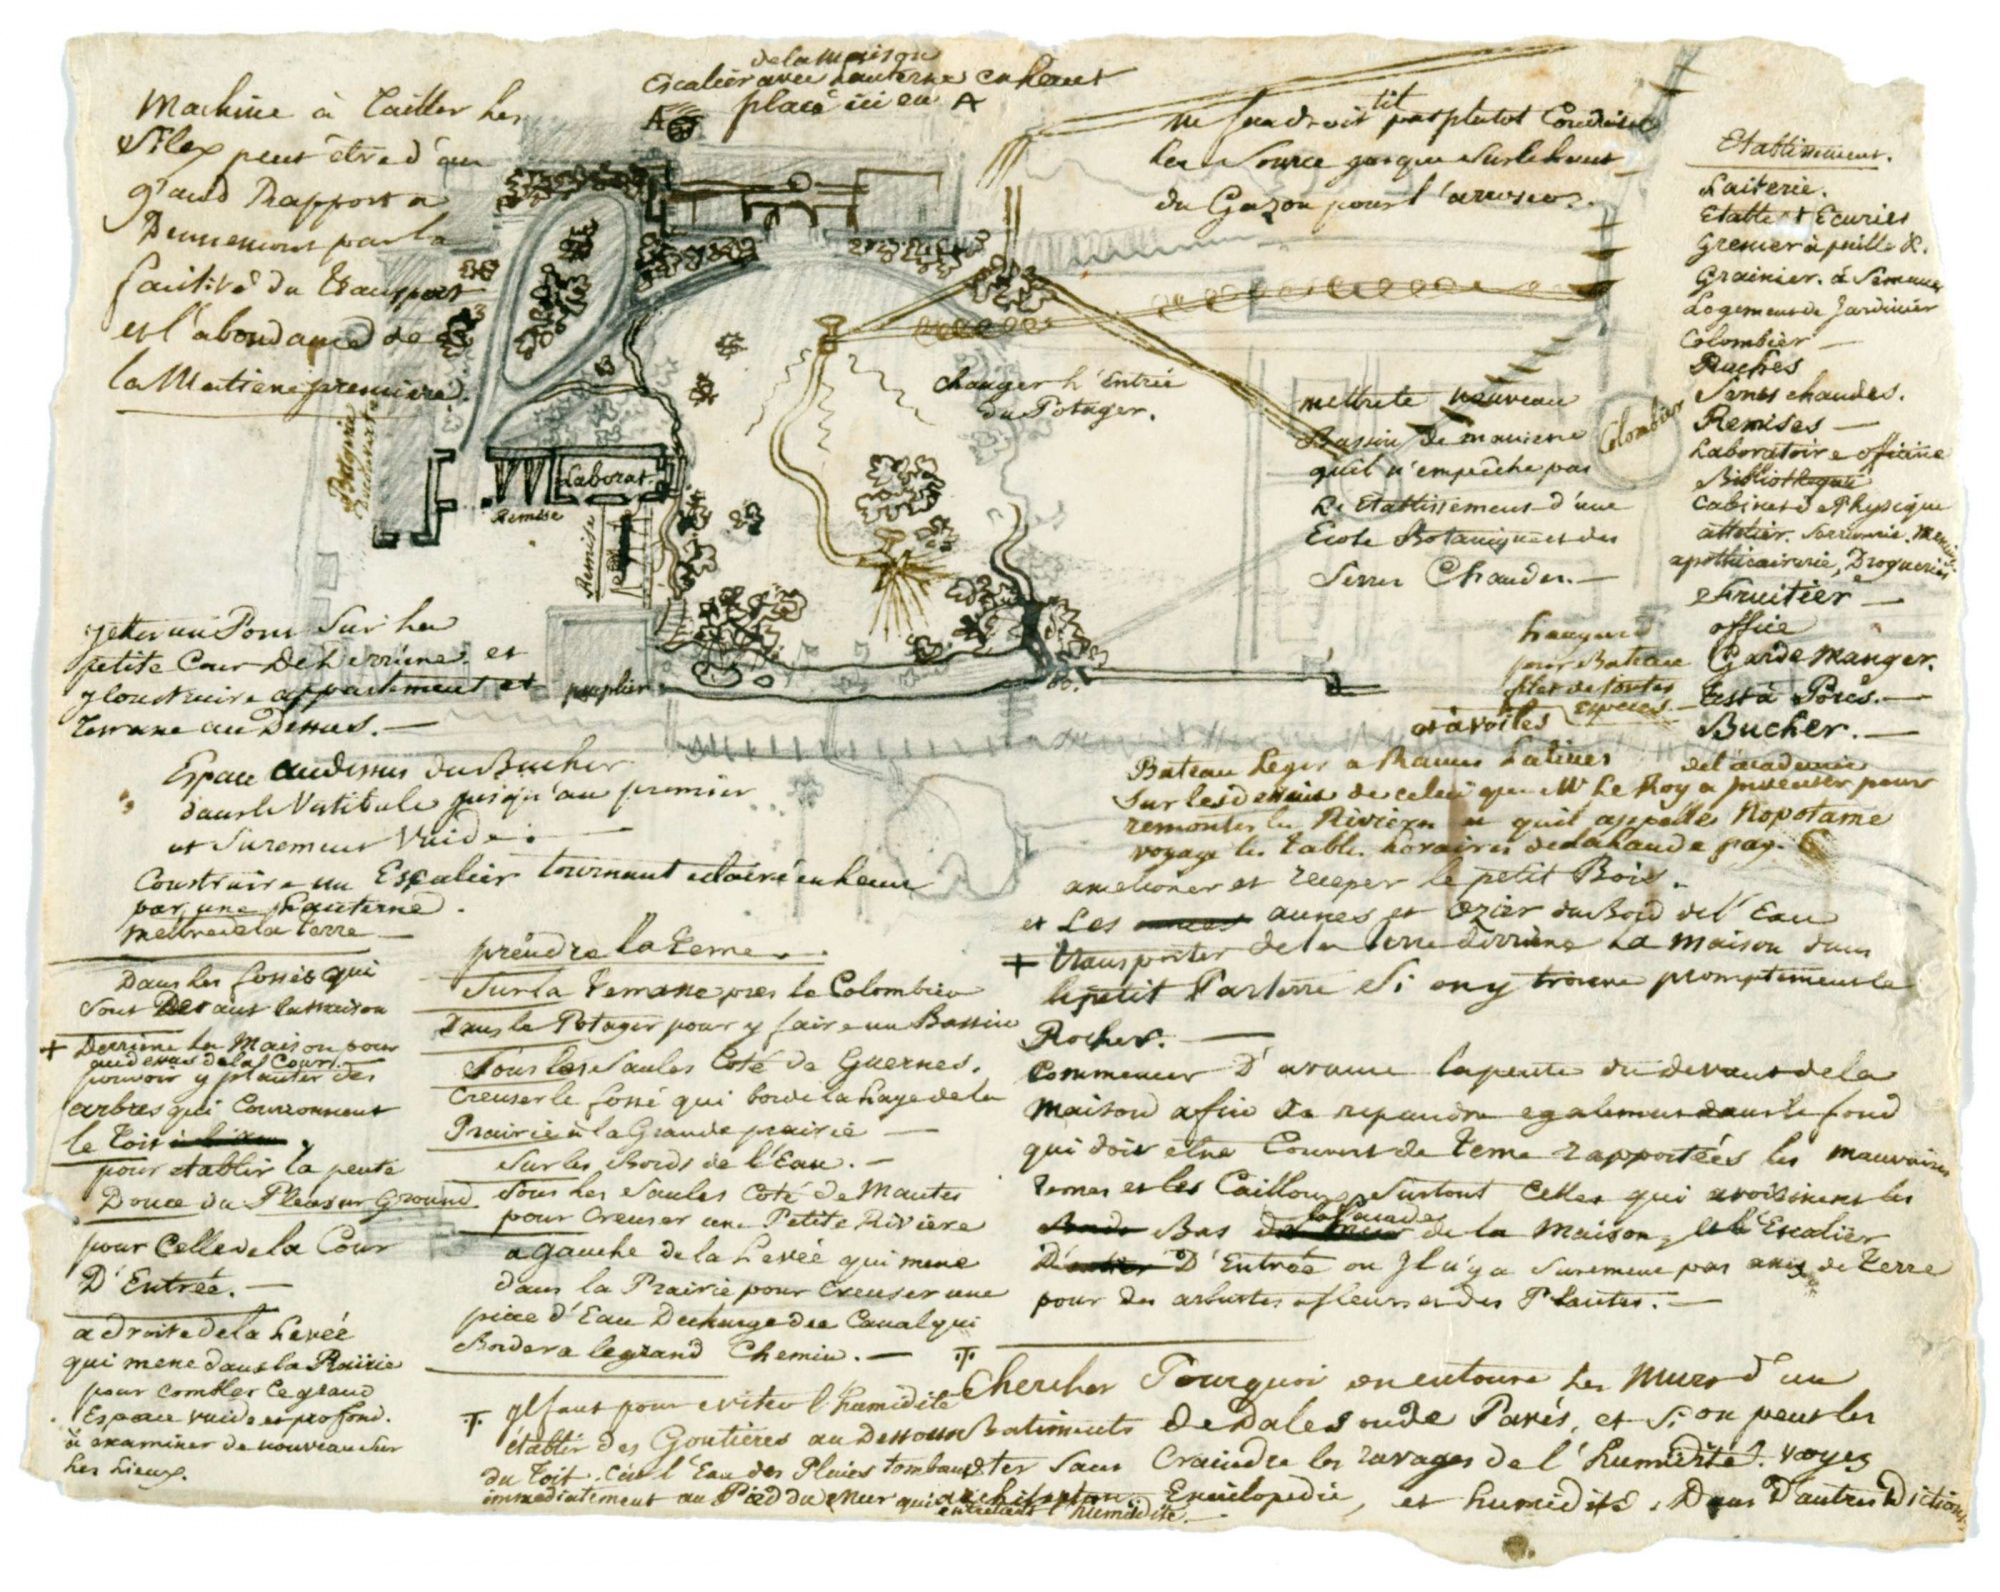 de la maison
Escalier avec Lanterne en haut
placé ici en A
A
Machine à tailler les
Silex peut être d'un
grand Rapport a
par la
facilité du transport
et l'abondance de
la Matiere premiere.
ne faudroit il pas plutot Conduire
La Source jusque sur le haut
du Gazon pour l'aroser.
Etablissement.
Laiterie.
Etable et Ecuries
Grenier à paille &.
Grainier. à Semences
Logement de Jardinier
Colombier —
Ruches
Serres chaudes.
Remises —
Laboratoire officine
Bibliotheque
Cabinet de Physique
attelier. Serrurerie.
apothicairerie, Drogueries
Fruitier —
office
Garde Manger.
Test à Porcs. —
Bucher. —
Changer l'Entrée
du Potager.
mettre le nouveau
Bassin de maniere
qu'il n'empeche pas
L'Etablissement d'une
Ecole Botanique et des
Serres Chaudes. —
Colombier
Laborat.
Remise
Remise
peuplier
jetter un Pont sur la
petite Cour De derriere. et
y Construire appartement et
Terrasse au Dessus. —
hangard
pour Bateau
et à voiles
Espace au dessus du Bucher
dans le Vestibule jusqu'au premier
est surement Vuide. —
Construire un Escalier tournant eclairé en haut
par une Lanterne.
mettre de la terre —
Dans les fossés qui
sont Devant la maison
+ Derriere la Maison pour
au devant de la Cour.
pouvoir y planter des
arbres qui Couronnent
le toit
pour etablir la pente
Douce du Pleasur Ground
pour celle de la Cour
D'Entrée. —
a droite de la Levée
qui mene dans la Prairie
pour combler le grand
Espace vuide et profond.
à examiner de nouveau sur
les Lieux.
prendre la terre.
Sur la Terrasse pres le Colombier
Dans le Potager pour y faire un Bassin
Sous les Saules Coté de Guernes.
Creuser le fossé qui borde la haye de la
Prairie à la Grande prairie —
Sur les Bords de l'Eau. —
Sous les Saules Coté de Mantes
pour Creuser une Petite Riviere
a gauche de la Levée qui mene
dans la Prairie pour Creuser une
piece d'Eau Decharge du Canal qui
Bordera le grand Chemin. —
Il faut pour eviter l'humidité
établir des Goutières au Dessous
du toit. car l'Eau des Pluies tombant
immediatement au Pied du Mur qui
entretient l'humidité. —
Bateau Leger a Rames Latines
sur les dessins de celui que Mr Le Roy a presenter
de l'academie
pour
remonter les Rivieres et qu'il appelle Nopotame
voyage les tables horaires de Lalande pag. 6
ameliorer et receper le petit Bois.
et Les aunes et Ozier du Bord de l'Eau
+ transporter de la terre derriere La maison dans
le petit Parterre Si on y trouve promptement le
Rocher. —
Commencer D'avance la pente du devant de la
Maison afin de repandre egalement dans le fond
qui doit etre Couvert de terre rapportées les mauvaises
terres et les Cailloux surtout Celles qui avoisinent les
Bords Bas de la facade de la Maison, et l'Escalier
D'Entrée ou Il n'y a surement pas assez de terre
pour des arbustes a fleurs et des Plantes. —
Chercher Pourquoi on entoure les Murs d'un
Batiments de Dales ou de Pavés, et Si on peut les
oter sans Craindre les ravages de l'humidité. voyez
architecture Enciclopedie, et humidité. Dans D'autres Diction